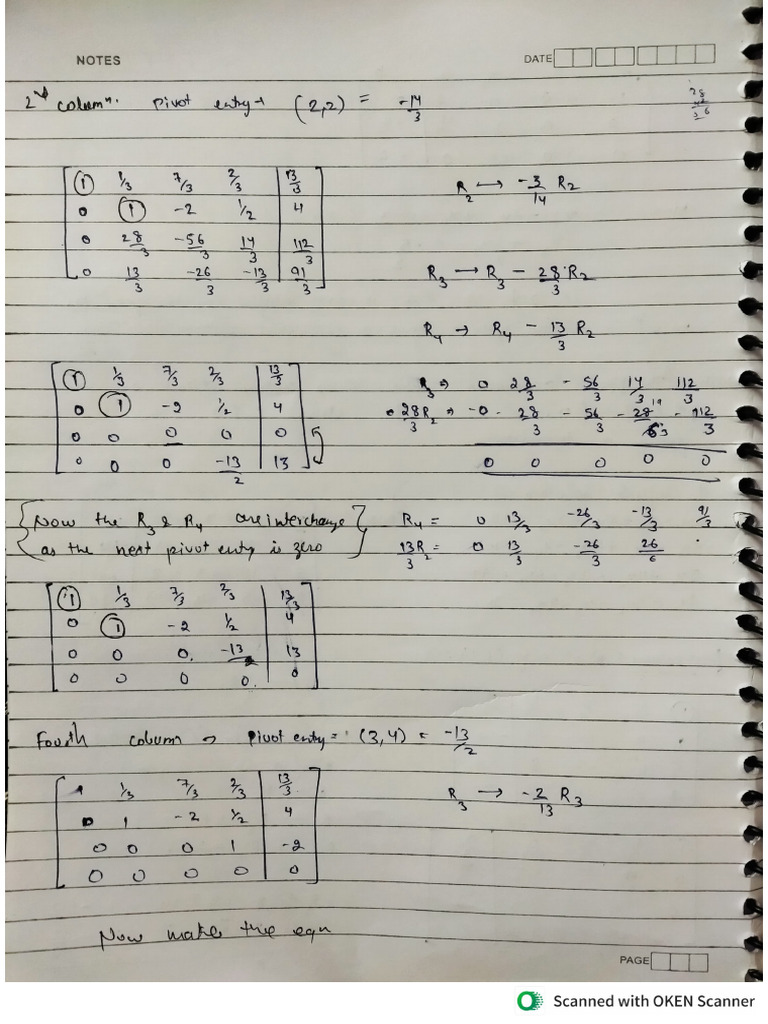 NOTES
DATE
2nd column. Pivot entry → (2,2) = -14/3
28
56
① 1/3 7/3 2/3 | 13/3
0 ① -2 1/2 | 4
0 28/3 -56/3 14/3 | 112/3
0 13/3 -26/3 -13/3 | 91/3
R2 → -3/14 R2
R3 → R3 - 28/3 R2
R4 → R4 - 13/3 R2
① 1/3 7/3 2/3 | 13/3
0 ① -2 1/2 | 4
0 0 0 0 | 0
0 0 0 -13/2 | 13
R3 ⇒ 0 28/3 - 56/3 14/3 112/3
28/3 R2 ⇒ -0 - 28/3 - 56/3 - 28/6 14/3 - 112/3
0 0 0 0 0
{Now the R3 & R4 are interchange}
{as the next pivot entry is zero}
R4 = 0 13/3 -26/3 -13/3 91/3
13/3 R2 = 0 13/3 -26/3 26/6
① 1/3 7/3 2/3 | 13/3
0 ① -2 1/2 | 4
0 0 0. -13/2 | 13
0 0 0 0. | 0
Fourth column → Pivot entry = (3,4) = -13/2
1 1/3 7/3 2/3 | 13/3
0 1 -2 1/2 | 4
0 0 0 1 | -2
0 0 0 0 | 0
R3 → -2/13 R3
Now make the eqn
PAGE
Scanned with OKEN Scanner